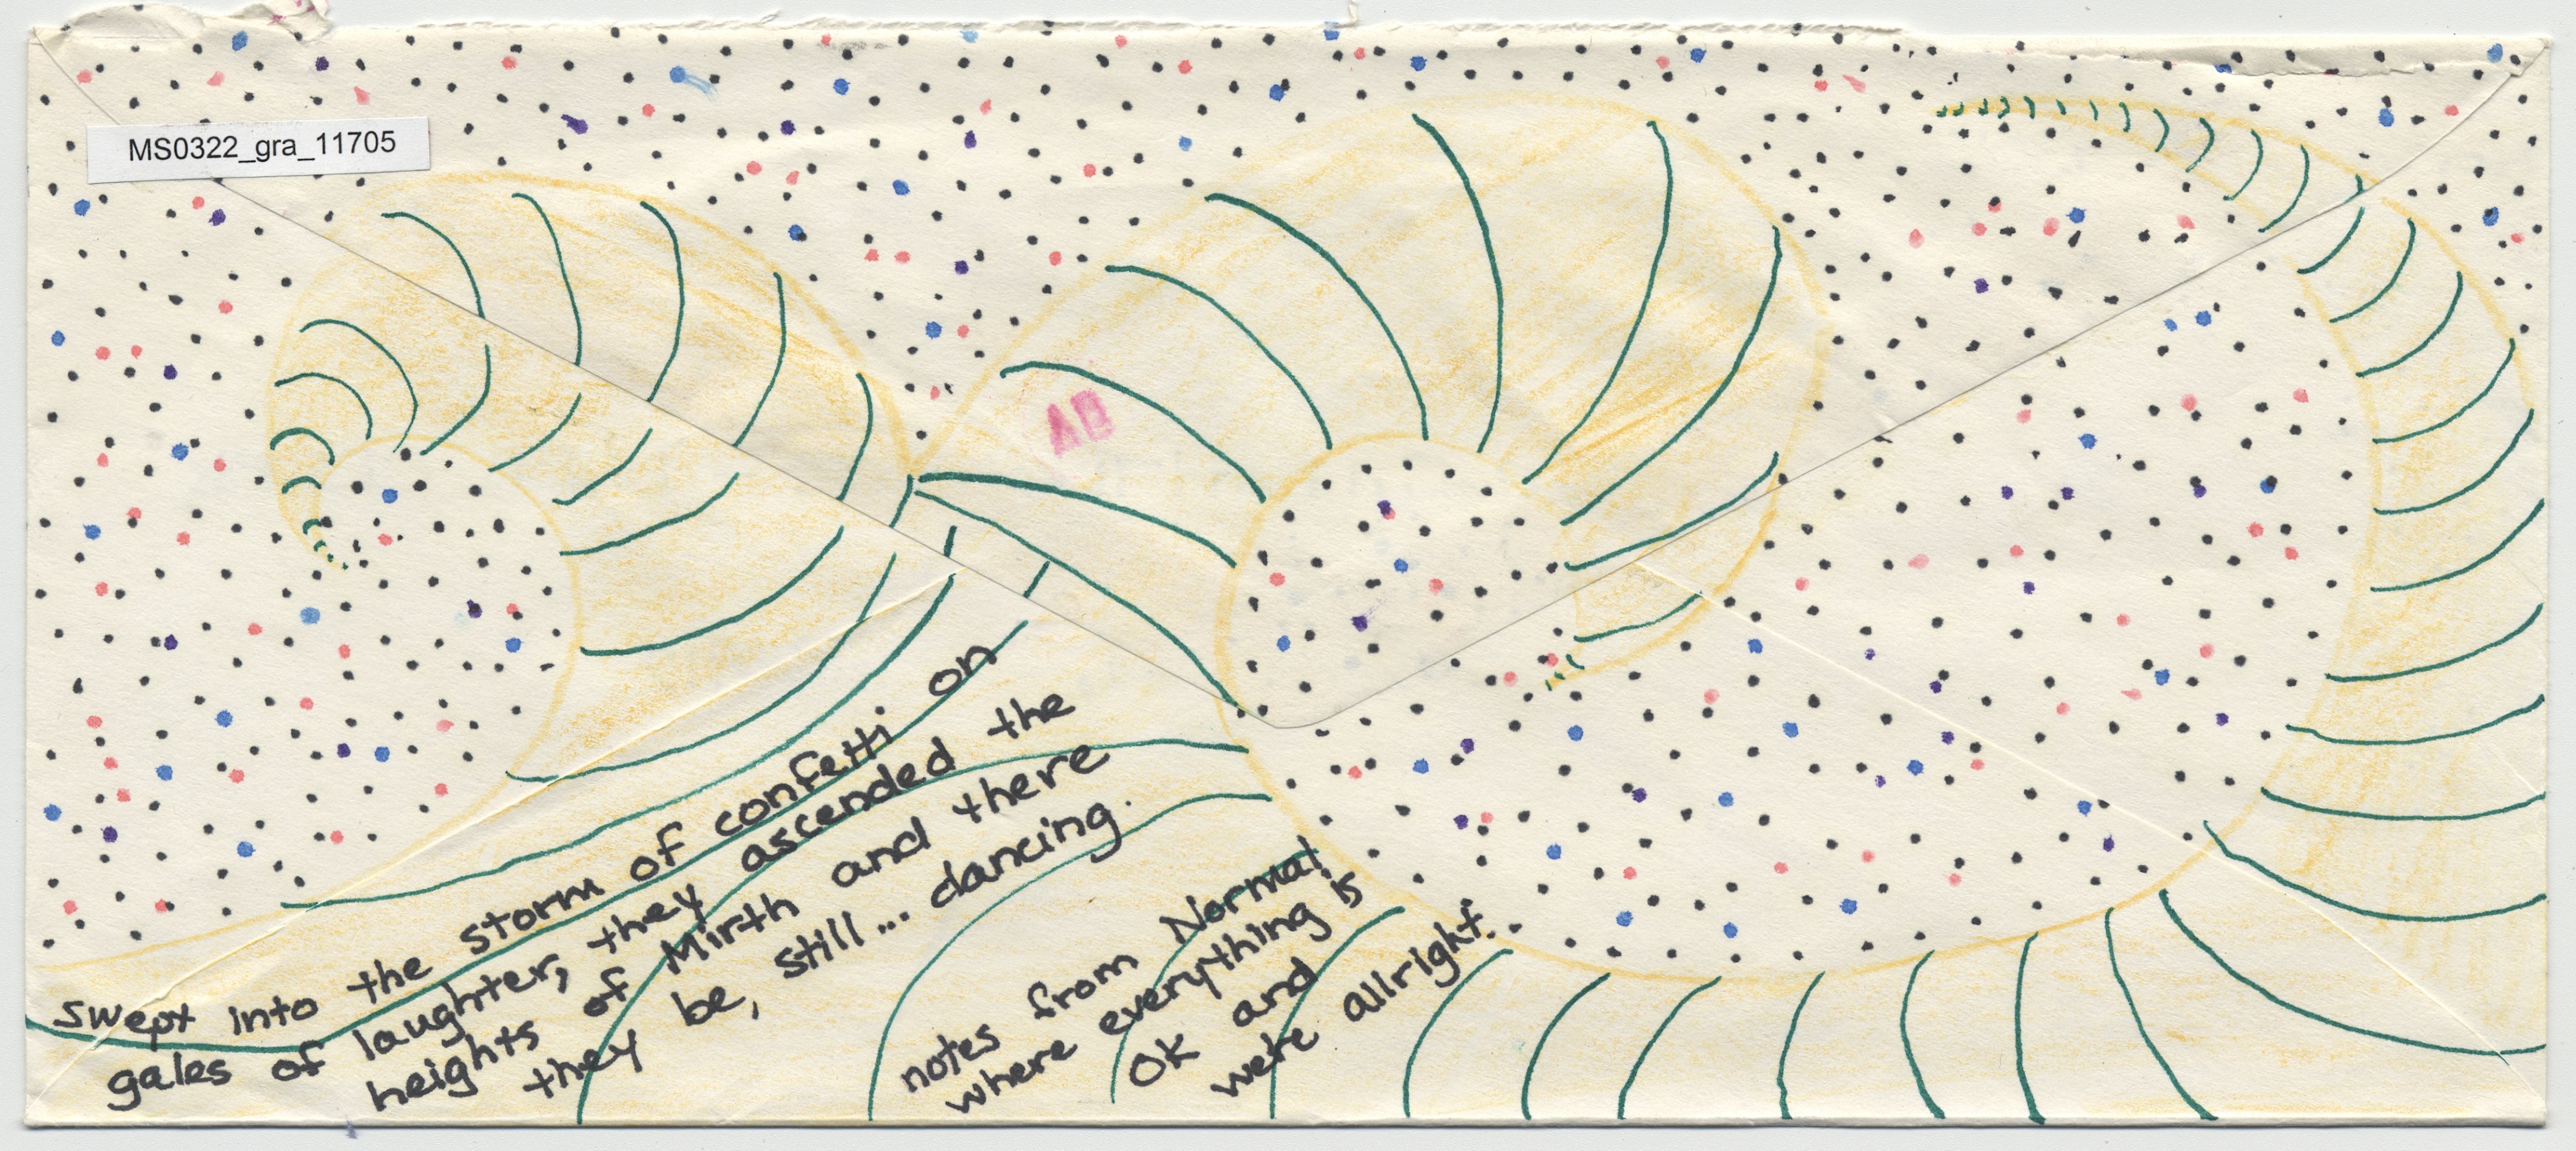 MS0322_gra_11705
AB
swept into the storm of confetti on
gales of laughter, they ascended the
heights of Mirth and there
they be, still... dancing.
notes from Normal
where everything is
OK and
we're allright.